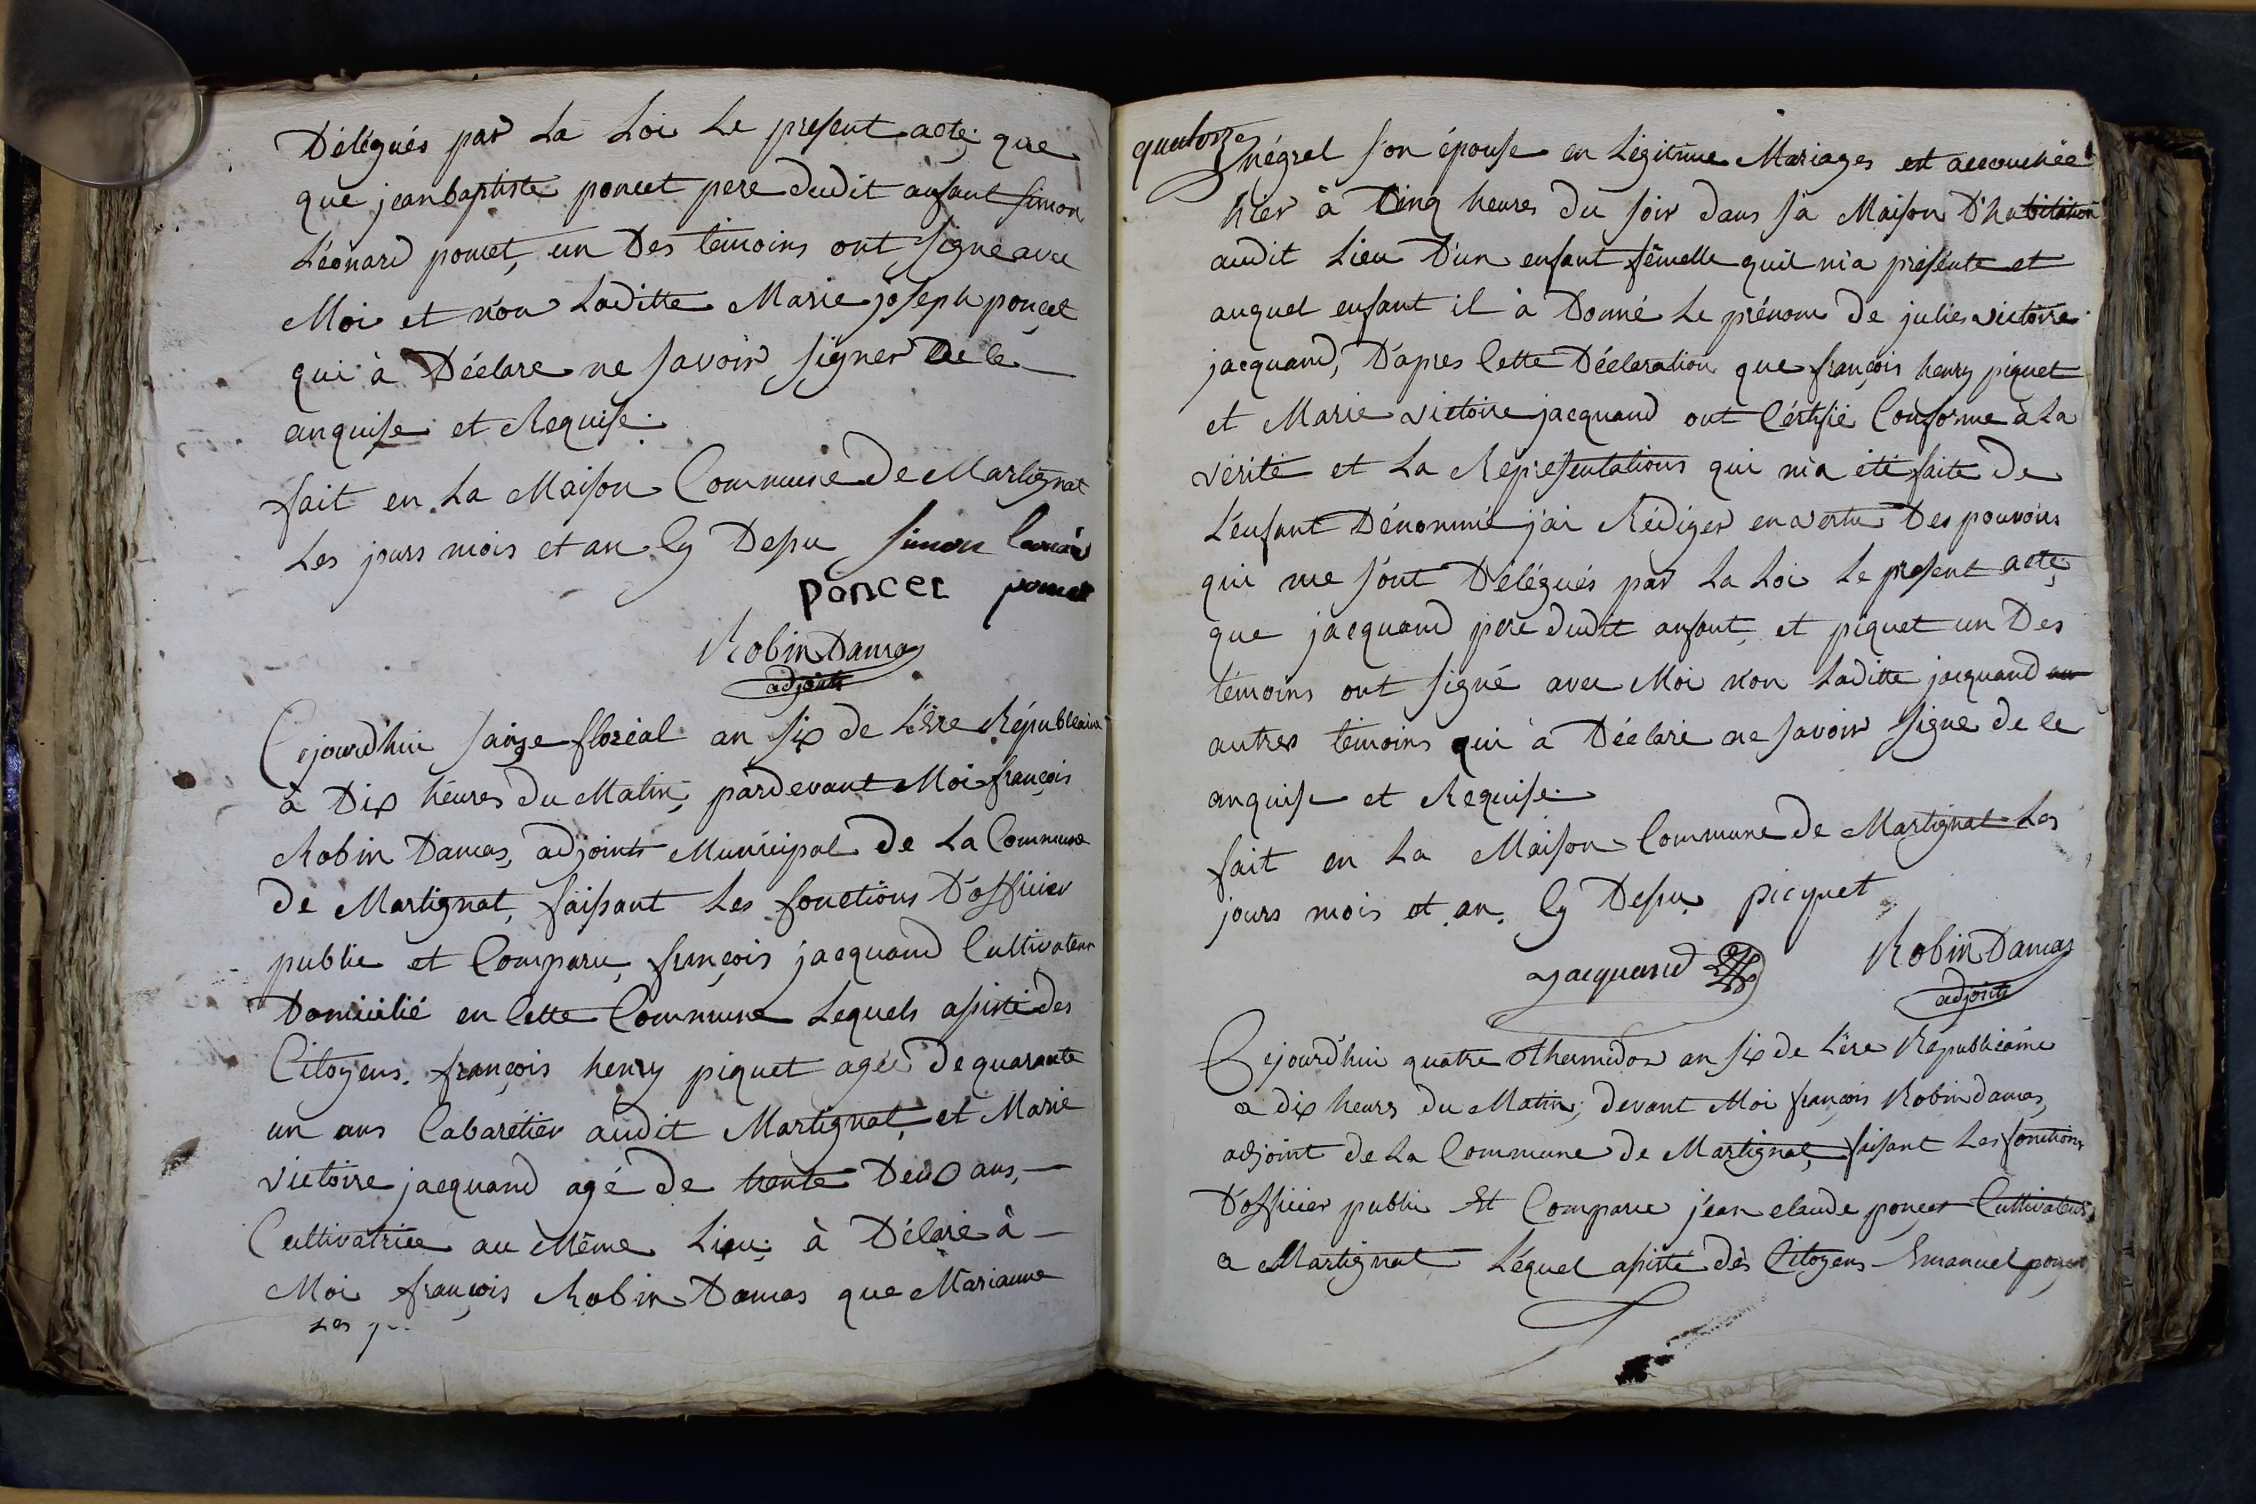 Délégués par La Loi Le present acte; que
que jeanbaptiste poncet pere dudit anfant simon
Léonard poncet, un Des temoins ont signé avec
Moi et non Laditte Marie joseph poncet
qui à Déclare ne savoir signer De ce
anquise et Requise.
fait en La Maison Commune De Martignat
Les jours mois et an Cy Dessu simon Leonard
poncet poncet
Robin Damas
adjoint
Cejourd'hui saize floréal an six de L'ere Républicaine
à Dix heures du Matin; pardevant Moi françois
Robin Damas, adjoints Municipal De La Commune
De Martignat, faissant Les fonctions D'officier
public et Comparu, françois jacquand Cultivateur
Domicilié en Cette Commune Lequels assisté des
Citoyens. françois henry piquet agée De quarante
un ans Cabarétier audit Martignat, et Marie
victoire jacquand agé De trente Deux ans,
Cultivatrice au Même Lieu; à Délaré à
Moi françois Robin Damas que Marianne
quatorze
négrel s'on épouse en Légitime Mariages est accouchée
hier à Cinq heures Du soir dans s'a Maison D'habitation
audit Lieu D'un enfant fémelle quil m'a présénte et
auquel enfant il à Donné Le prénom De julies victoire
jacquand, D'apres Cette Déclaration que françois henry piquet
et Marie victoire jacquand ont Cértifié Conforme à La
vérité et La Réprésentations qui m'a été faite De
L'enfant Dénommé j'ai Rédiger en vertu Des pouvoirs
qui me s'ont Délégués par La Loi Le present acte;
que jacquand pere dudit anfant, et piquet un Des
témoins ont signé avec Moi non Laditte jacquand au
autres témoins qui à Déclaré ne savoir signe de ce
anquise et Requise.
fait en La Maison Commune De Martignat Les
jours mois et an. Cy Dessu. picquet
Jacquand
Robin Damas
adjoint
Cejourd'hui quatre thermidor an six de L'ere Républicaine
a dix heures du Matin; devant Moi françois Robin damas,
adjoint de La Commune De Martignat, faisant Les fonctions
D'officier public Est Comparu jean claude poncet Cultivateur
a Martignat Léquel assisté dés Citoyens Emanuel poncet